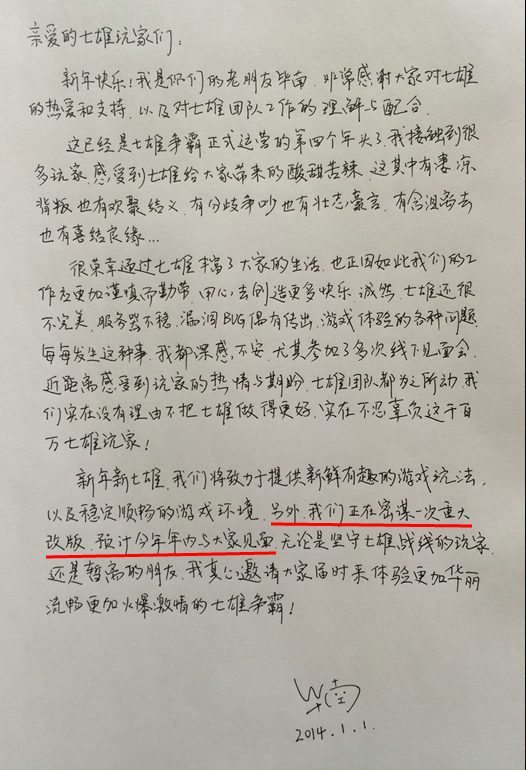 亲爱的七雄玩家们:
新年快乐!我是你们的老朋友毕南,非常感谢大家对七雄
的热爱和支持,以及对七雄团队工作的理解与配合。
这已经是七雄争霸正式运营的第四个年头了,我接触到很
多玩家,感受到七雄给大家带来的酸甜苦辣,这其中有凄凉
背叛也有欢聚结义,有分歧争吵也有壮志豪言,有含泪离去
也有喜结良缘...
很荣幸通过七雄丰富了大家的生活,也正因如此我们的工
作应更加谨慎而勤劳,用心去创造更多快乐。诚然,七雄还很
不完美,服务器不稳,漏洞BUG偶有传出,游戏体验的各种问题,
每每发生这种事,我都深感不安,尤其参加了多次线下见面会,
近距离感受到玩家的热情与期盼,七雄团队都为之所动,我
们实在没有理由不把七雄做得更好,实在不忍辜负这千百
万七雄玩家!
新年新七雄,我们将致力于提供新鲜有趣的游戏玩法,
以及稳定顺畅的游戏环境,另外,我们正在密谋一次重大
改版,预计今年年内与大家见面,无论是坚守七雄战线的玩家
还是暂离的朋友,我真心邀请大家届时来体验更加华丽
流畅更加火爆激情的七雄争霸!
毕南
2014.1.1.